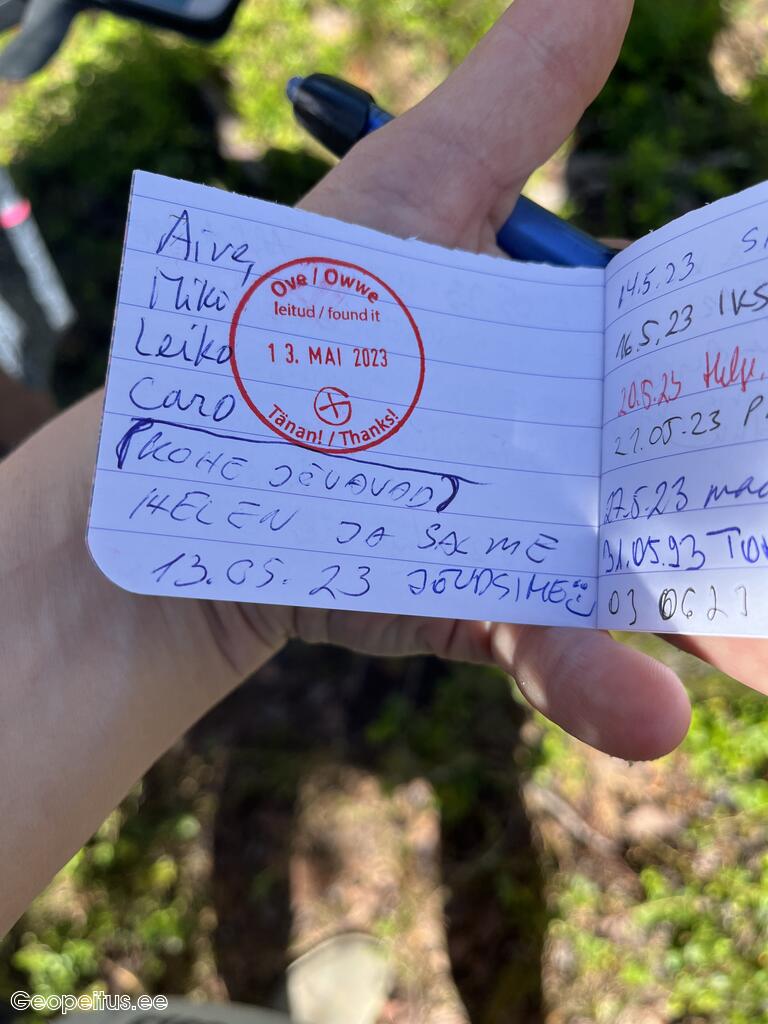 Aive,
Miko
Leiko
Caro
Ove / Owwe
leitud / found it
13. MAI 2023
Tänan! / Thanks!
KOHE JÕUAVAD
HELEN JA SALME
13.05.23 JÕUDSIME
14.5.23
16.5.23 IKS
20.5.23
27.05.23
27.5.23
31.05.93
03 06 23
Geopeitus.ee